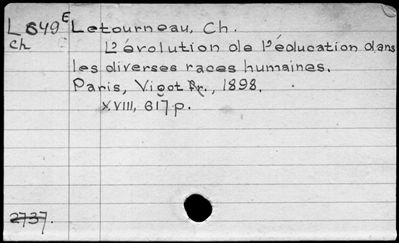 L 649 E Letourneau, Ch.
Ch L'évolution de l'éducation dans
les diverses races humaines.
Paris, Vigot Fr., 1898.
XVIII, 617 p.
2737.